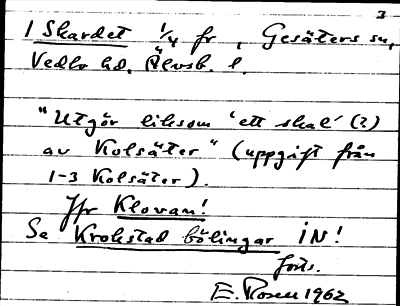 3
1 Skardet 1/4 fr, Gesäters sn,
Vedbo hd, Älvsb. l.
"Utgör liksom 'ett skal' (?)
av Kolsäter" (uppgift från
1-3 Kolsäter).
Jfr Klovan!
Se Krokstad bölingar IN!
forts.
E. Rosen 1962